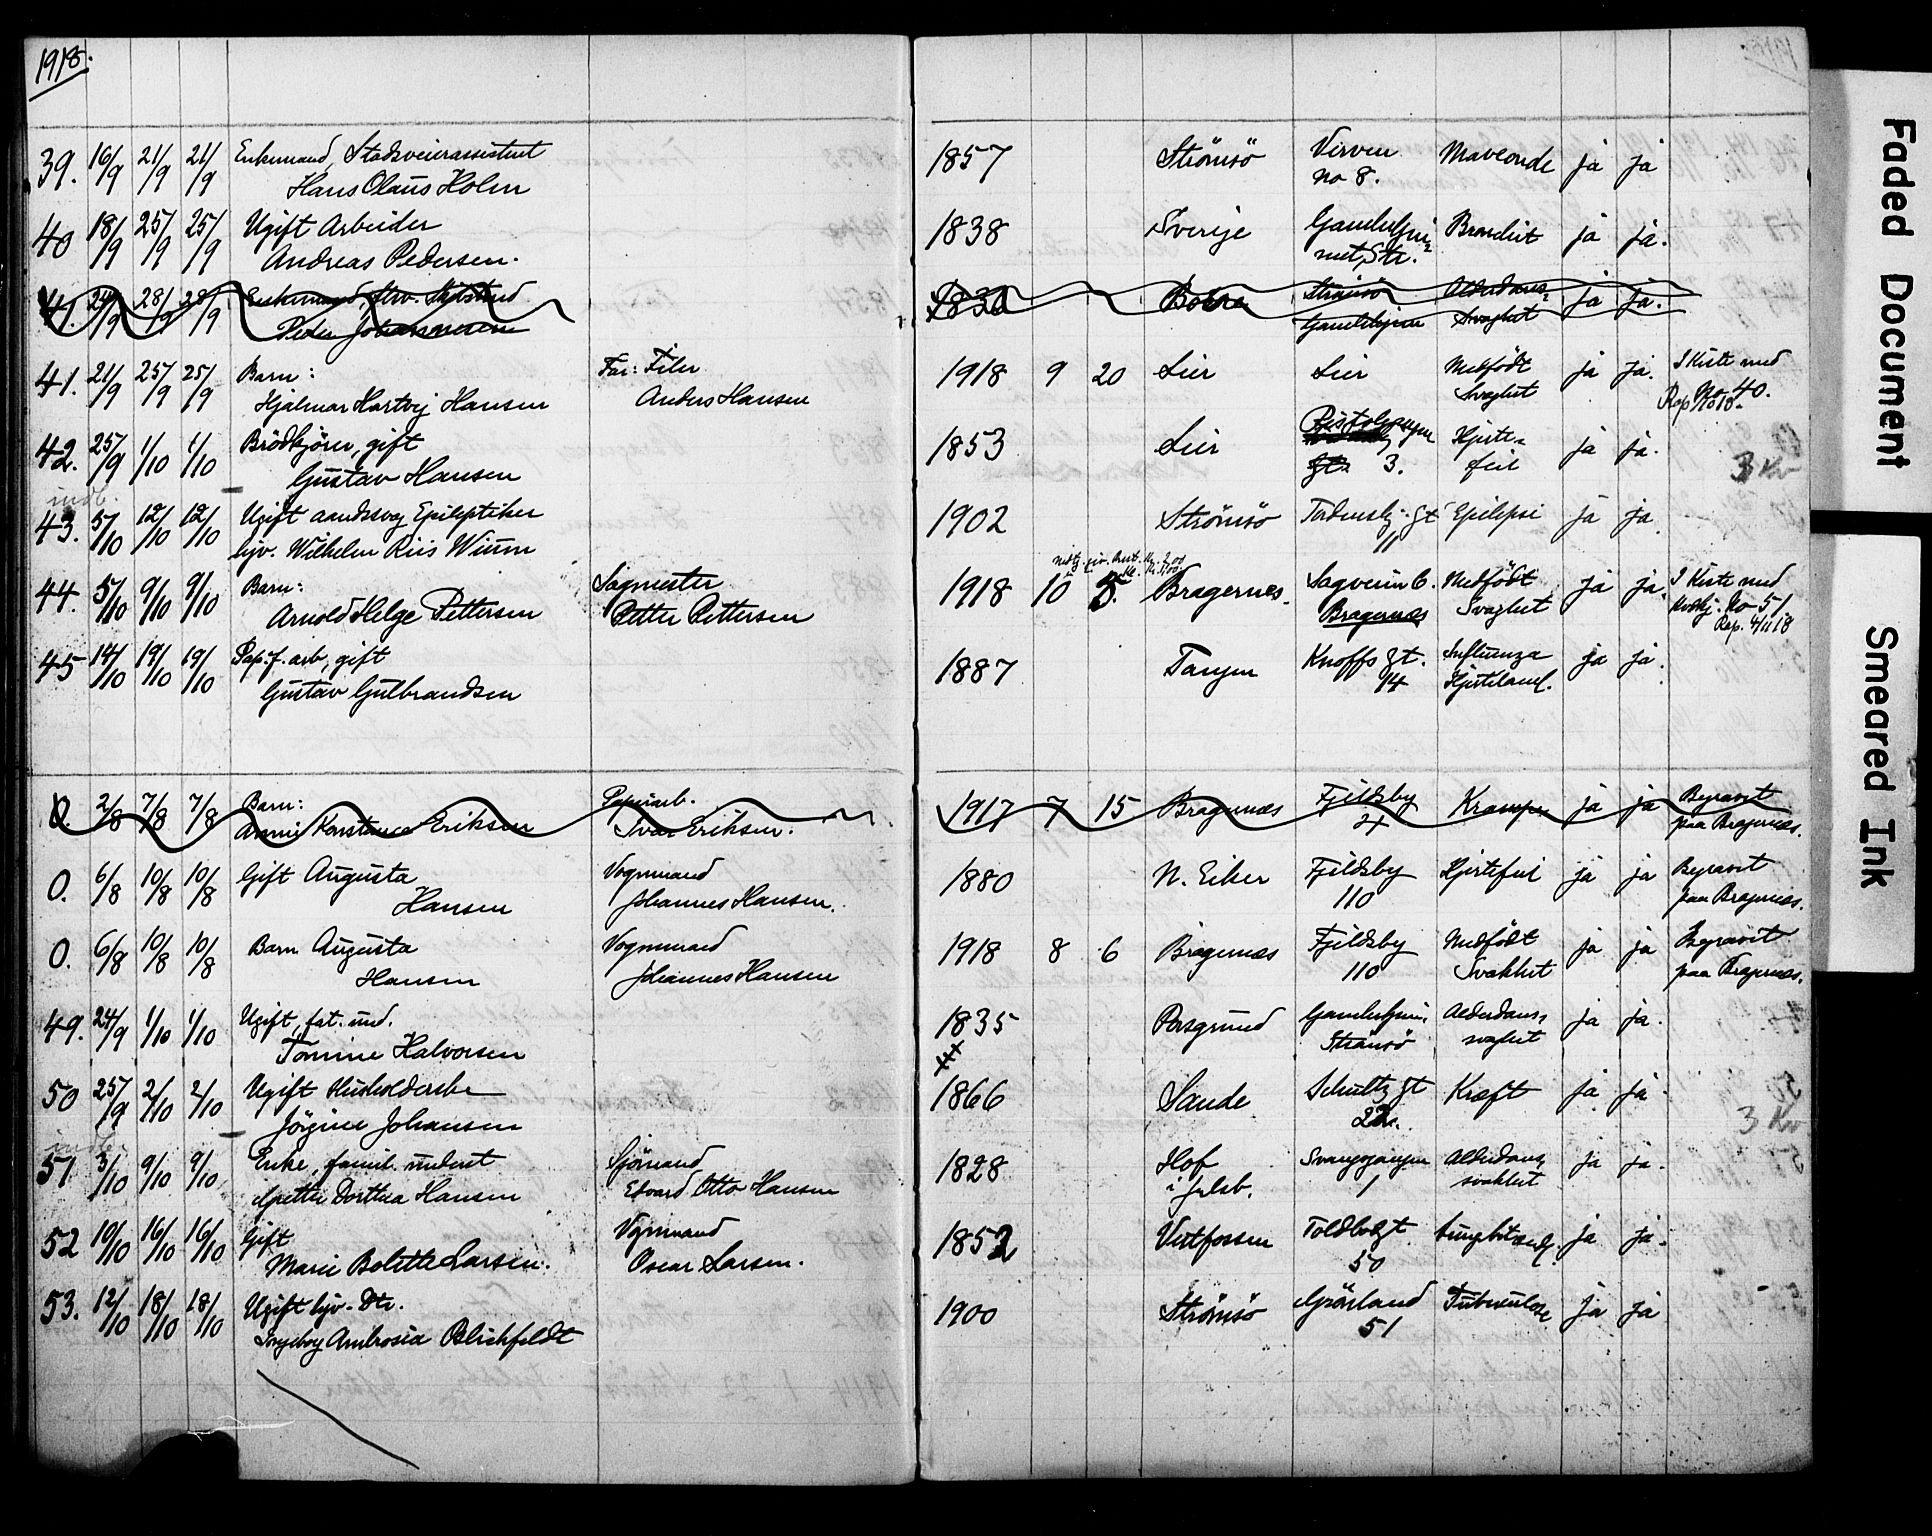 1918.
39. 16/9 21/9 21/9 Enkemand, Stadsveierassistent 1857 Strömsö Verven Mavconde ja ja
Hans Olaus Holm No 8.
40 18/9 25/9 25/9 Ugift Arbeider 1838 Sverige Gamlehjem- Brandur ja ja.
Andreas Pedersen. met, Str.
41. 24/9 28/9 28/9 Enkemand, 1836 Strömsö Alderdoms- ja ja.
Peder Johannesen Gamlehjem Svaghet
41. 21/9 25/9 25/9 Barn: Far: Filer 1918 9 20 Lier Lier Medfödt ja ja. I Kiste med
Hjalmar Hartvig Hansen Anders Hansen Svaghet No 40.
42. 25/9 1/10 1/10 Brödkjörer, gift 1853 Lier Hjerte- ja ja.
Gustav Hansen 3. feil 3 Kv
indb.
43. 5/10 12/10 12/10 Ugift aandssvag Epileptiker 1902 Strömsö Tordenskj. gt Epilepsi ja ja.
hjv. Wilhelm Riis Wium 11
44. 5/10 9/10 9/10 Barn: Sagmester 1918 10 5. Bragernes. Sagveien 6. Medfödt ja ja. I Kiste med
Arnold Helge Pettersen Petter Pettersen Bragernæs Svaghet Kvkj. No 51.
Rep. 4/11 18
45 14/10 19/10 19/10 Pap. f. arb, gift 1887 Tangen Knoffs gt. Influenza ja ja.
Gustav Gulbrandsen 14 Hjertelaml.
0. 2/8 7/8 7/8 Barn: Papirarb. 1917 7 15 Bragernæs Fjeldsby Krampe ja ja Begravet
Konstance Eriksen Ivar Eriksen. paa Bragernæs.
0. 6/8 10/8 10/8 Gift Augusta Vognmand 1880 N. Eiker Fjeldsby Hjertefeil ja ja Begravet
Hansen Johannes Hansen. 110 paa Bragernæs.
0. 6/8 10/8 10/8 Barn Augusta Vognmand 1918 8 6 Bragernæs Fjeldsby Medfödt ja ja Begravet
Hansen Johannes Hansen 110 Svakhet paa Bragernæs.
49. 24/9 1/10 1/10 Ugift, fat. und. 1835 Porsgrund Gamlehjem, Alderdoms- ja ja.
Tomine Halvorsen Strömsö svaghet
50 25/9 2/10 2/10 Ugift Husholderske 1866 Sande Schultz gt Kræft ja ja.
Jörgine Johansen 22. 3 Kv
indb.
51 3/10 9/10 9/10 Enke, famil. underst Sjömand 1828 Hof Svangsgangen Alderdoms- ja ja.
Dorthea Hansen Edvard Otto Hansen i Jarlsb. 1 svakhet
52 10/10 16/10 16/10 Gift Vognmand 1852 Vestfossen Toldbodgt Lungebetændl. ja ja.
Marie Bolette Larsen. Oscar Larsen. 50
53. 12/10 18/10 18/10 Ugift hjv. Dtr. 1900 Strömsö Grönland Tuberculose ja ja
Ingeborg Ambrosia Blichfeldt 51
Faded Document
Smeared Ink